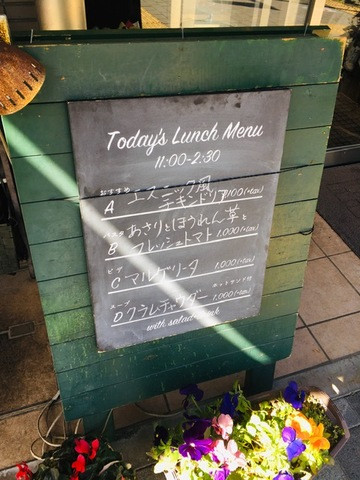 Today's Lunch Menu
11:00-2:30
おすすめ エスニック風
A チキンドリア 1100(+tax)
パスタ あさりとほうれん草と
B フレッシュトマト 1,000(+tax)
ピザ
C マルゲリータ 1,000(+tax)
スープ ホットサンド付
D クラムチャウダー 1,000(+tax)
with salad